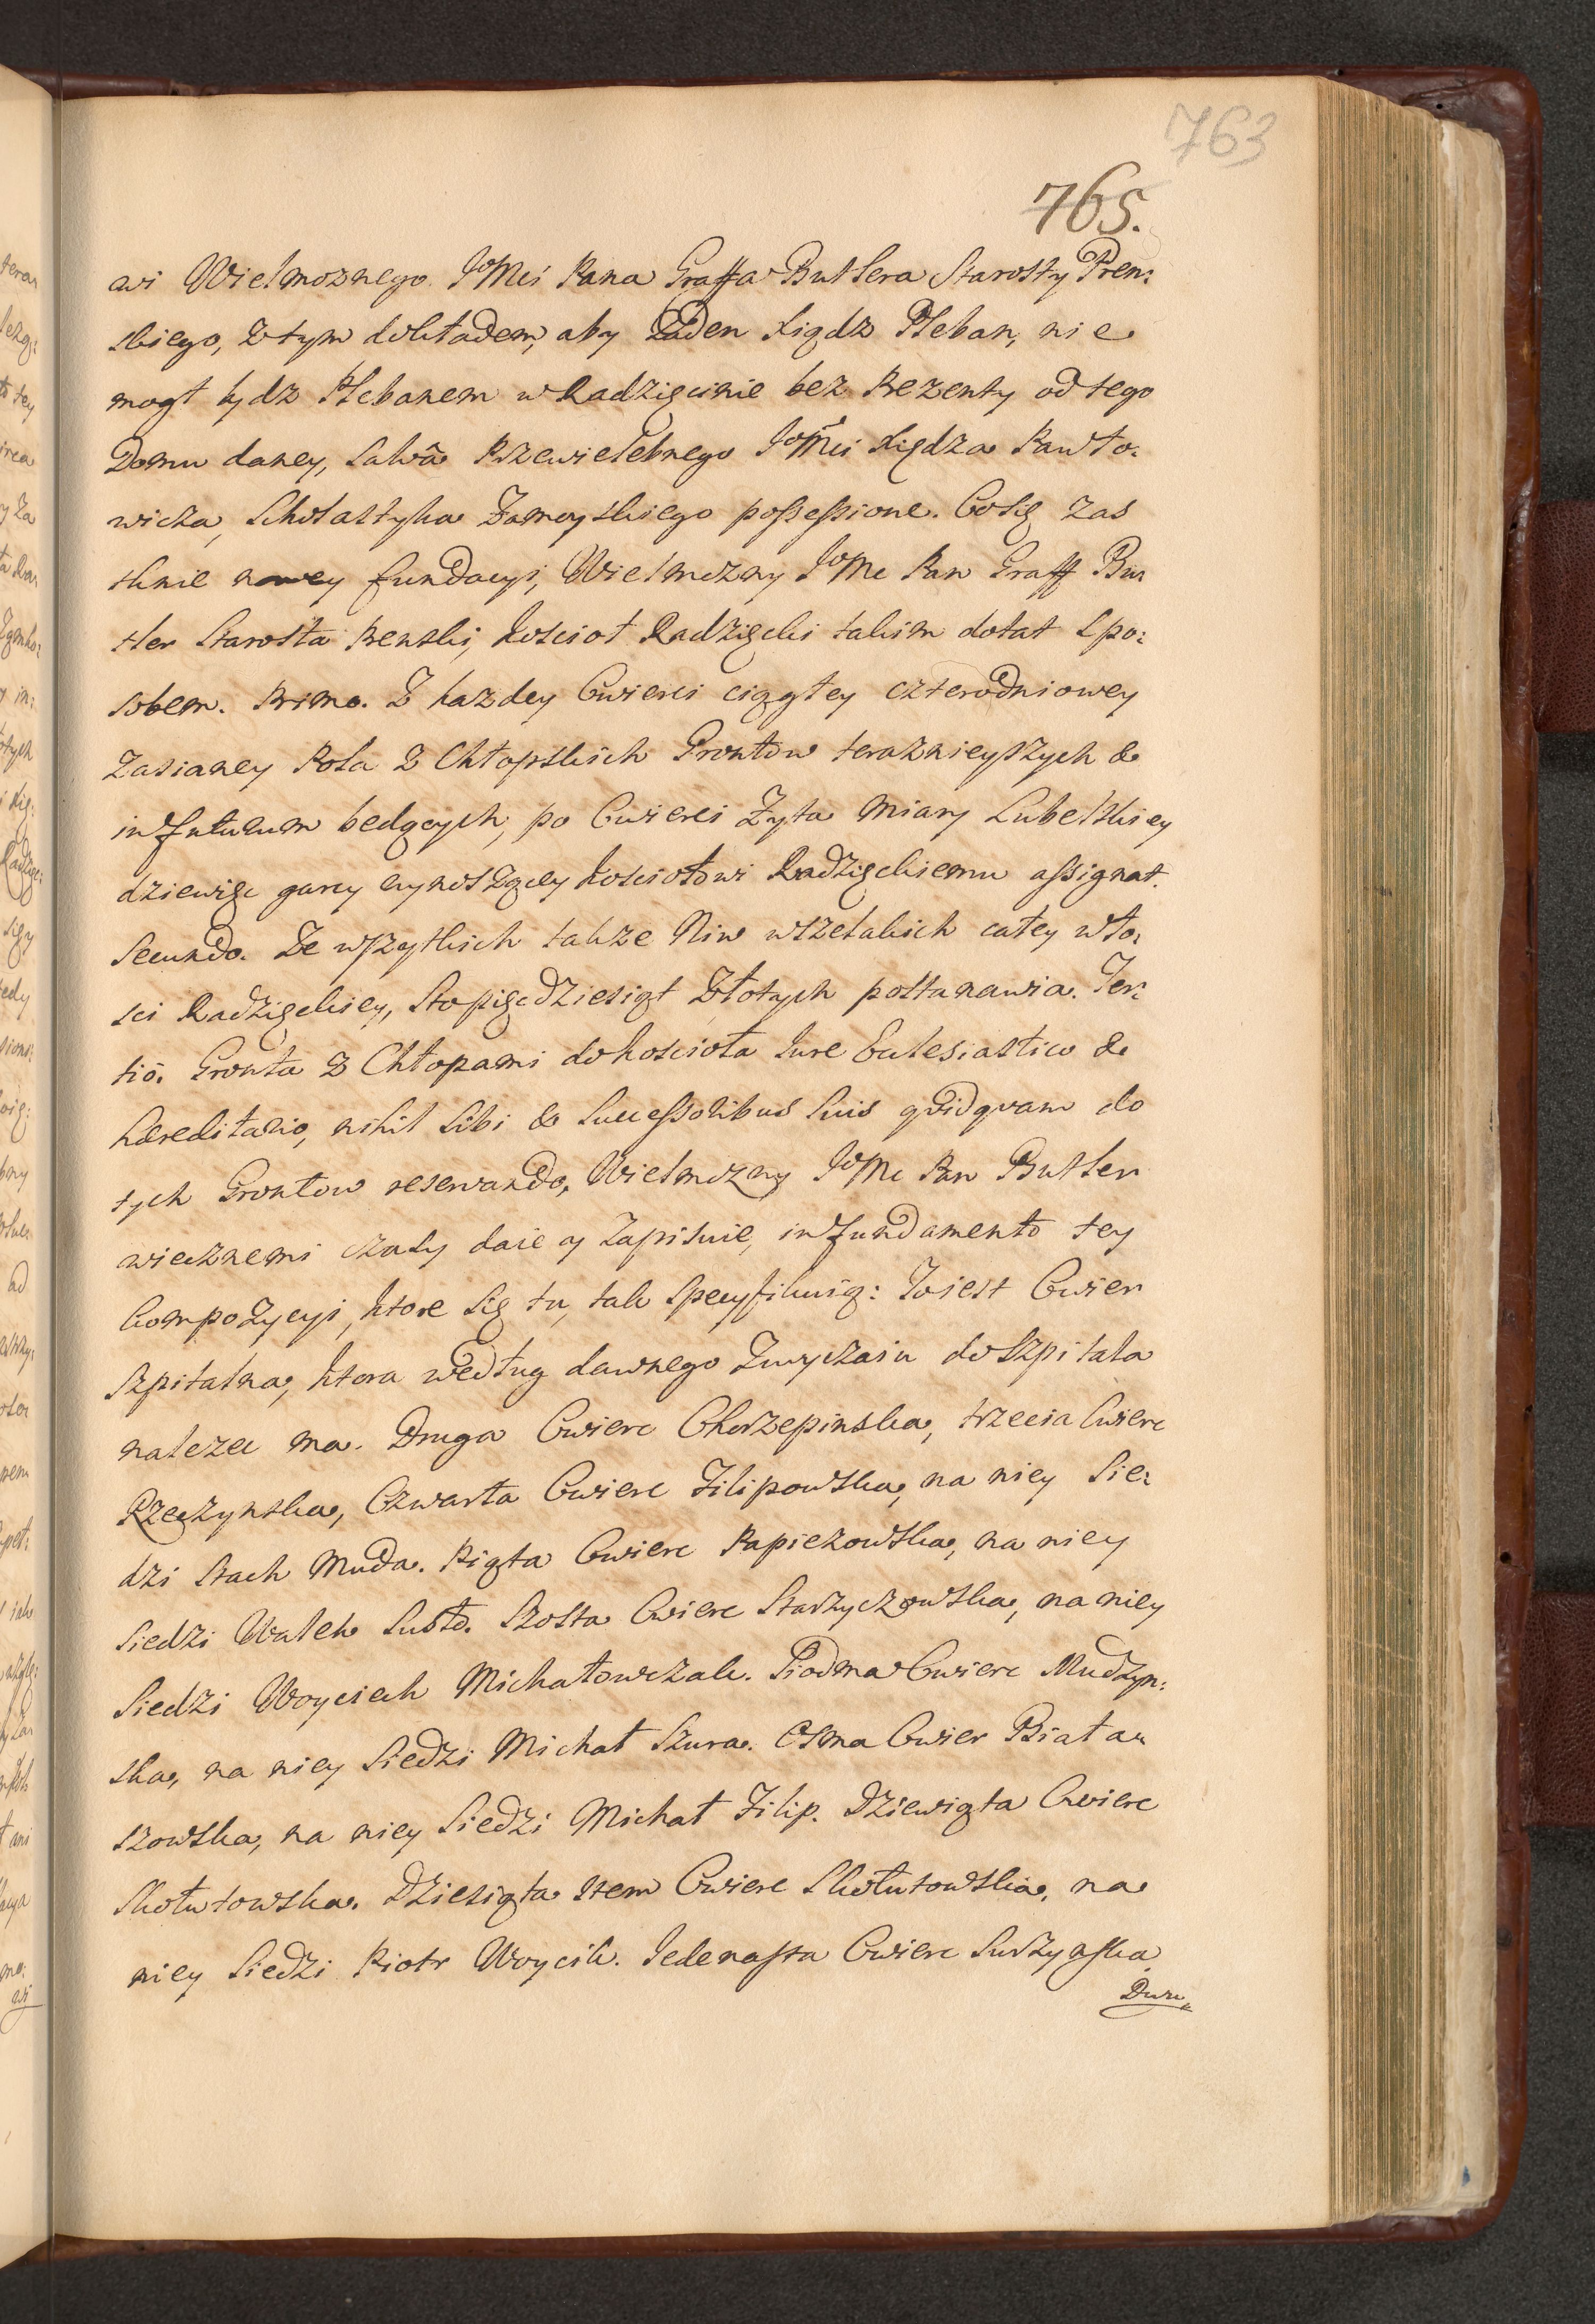 763
765.
wi Wielmoznego JoMci Pana Graffa Butlera Starosty Pren:
skiego, z tym dokładem, aby zaden Xiądz Pleban, nie
mogł bydz Plebanem w Radzięcinie bez Prezenty od tego
Domu daney, Salvâ Przewielebnego JoMci Xiędza Pawło:
wicza, Scholastyka Zamoyskiego possessione. Co się zas
tknie nowey fundacyi, Wielmozny JoMc Pan Graff But
tler Starosta Prenski, Koscioł Radzięcki takim dotat spo:
sobem. Primo. Z kazdey Cwierci ciągłey czterodniowey
zasianey Pola z Chłopskich Grontow teraznieyszych &
in futurum bedących, po Cwierci Zyta miary Lubelskiey
dziewięc garcy wynoszącey Kosciołowi Radzięckiemu assignat.
Secundo. Ze wszytkich takze Niw wszelakich całey wło:
sci Radzięckiey, Stopięcdziesiąt Złotych postanawia. Ter:
tiò. Gronta z Chłopami do Kosciola Jure Eclesiastico &
hæreditario, nihil sibi & Successoribus suis qvidqvam do
tych Grontow reservando, Wielmozny JoMc Pan Butler
wiecznemi czasy daie y zapisuie, in fundamento tey
Kompozycyi, ktore się tu, tak specyfikuią: To iest Cwierc
Szpitalna, ktora według dawnego Zwyczaiu do Szpitala
nalezec ma. Druga Cwierc Chorzepinska, trzecia Cwierc
Rzeczynska, Czwarta Cwierc Filipowska, na niey Sie:
dzi Stach Muda. Piąta Cwierc Papiezowska, na niey
Siedzi Walek Susło. Szosta Cwierc Starzyczowska, na niey
Siedzi Woyciech Michałowczak. Siodma Cwierc Mudzyn:
ska, na niey Siedzi Michał Szura. Osma Cwierc Białas
szowska, na niey Siedzi Michał Filip. Dziewiąta Cwierc
Skołutowska. Dziesiąta item Cwierc Skołutowska, na
niey Siedzi Piotr Woycik. Jedenasta Cwierc Suszynska
Dwu„